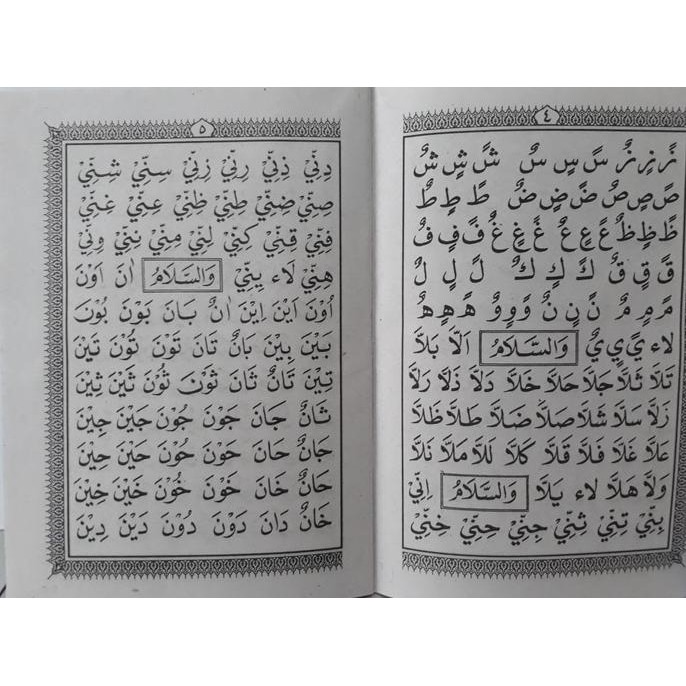 ٤
زً زٍ زٌ سً سٍ سٌ شً شٍ شٌ
صً صٍ صٌ ضً ضٍ ضٌ طً طٍ طٌ
ظً ظٍ ظٌ عً عٍ عٌ غً غٍ غٌ فً فٍ فٌ
قً قٍ قٌ كً كٍ كٌ لً لٍ لٌ
مً مٍ مٌ نً نٍ نٌ وً وٍ وٌ هً هٍ هٌ
لاء يً يٍ يٌ وَالسَّلَامُ اَلاَّ بَلاَّ
تَلاَّ ثَلاَّ جَلاَّ حَلاَّ خَلاَّ دَلاَّ ذَلاَّ رَلاَّ
زَلاَّ سَلاَّ شَلاَّ صَلاَّ ضَلاَّ طَلاَّ ظَلاَّ
عَلاَّ غَلاَّ فَلاَّ قَلاَّ كَلاَّ لَلاَّ مَلاَّ نَلاَّ
وَلاَّ هَلاَّ لاء يَلاَّ وَالسَّلَامُ اِنِّيْ
بِنِّيْ تِنِّيْ ثِنِّيْ جِنِّيْ حِنِّيْ خِنِّيْ
٥
دِنِّيْ ذِنِّيْ رِنِّيْ زِنِّيْ سِنِّيْ شِنِّيْ
صِنِّيْ ضِنِّيْ طِنِّيْ ظِنِّيْ عِنِّيْ غِنِّيْ
فِنِّيْ قِنِّيْ كِنِّيْ لِنِّيْ مِنِّيْ نِنِّيْ وِنِّيْ
هِنِّيْ لاء يِنِّيْ وَالسَّلَامُ اٰنَ اَوْنَ
اُوْنَ اَيْنَ اِيْنَ اٰنٌ بَانَ بَوْنَ بُوْنَ
بَيْنَ بِيْنَ بَانٌ تَانَ تَوْنَ تُوْنَ تَيْنَ
تِيْنَ تَانٌ ثَانَ ثَوْنَ ثُوْنَ ثَيْنَ ثِيْنَ
ثَانٌ جَانَ جَوْنَ جُوْنَ جَيْنَ جِيْنَ
جَانٌ حَانَ حَوْنَ حُوْنَ حَيْنَ حِيْنَ
حَانٌ خَانَ خَوْنَ خُوْنَ خَيْنَ خِيْنَ
خَانٌ دَانَ دَوْنَ دُوْنَ دَيْنَ دِيْنَ